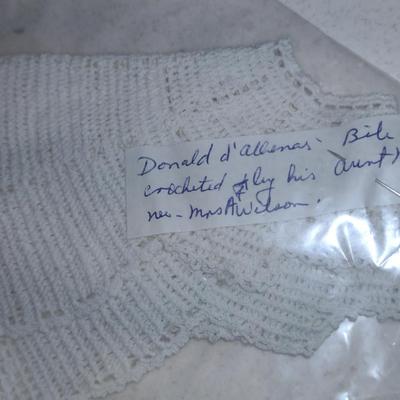 Donald d'Albenas. Bib
crocheted by his Aunt
nee - Mrs A Wilson.